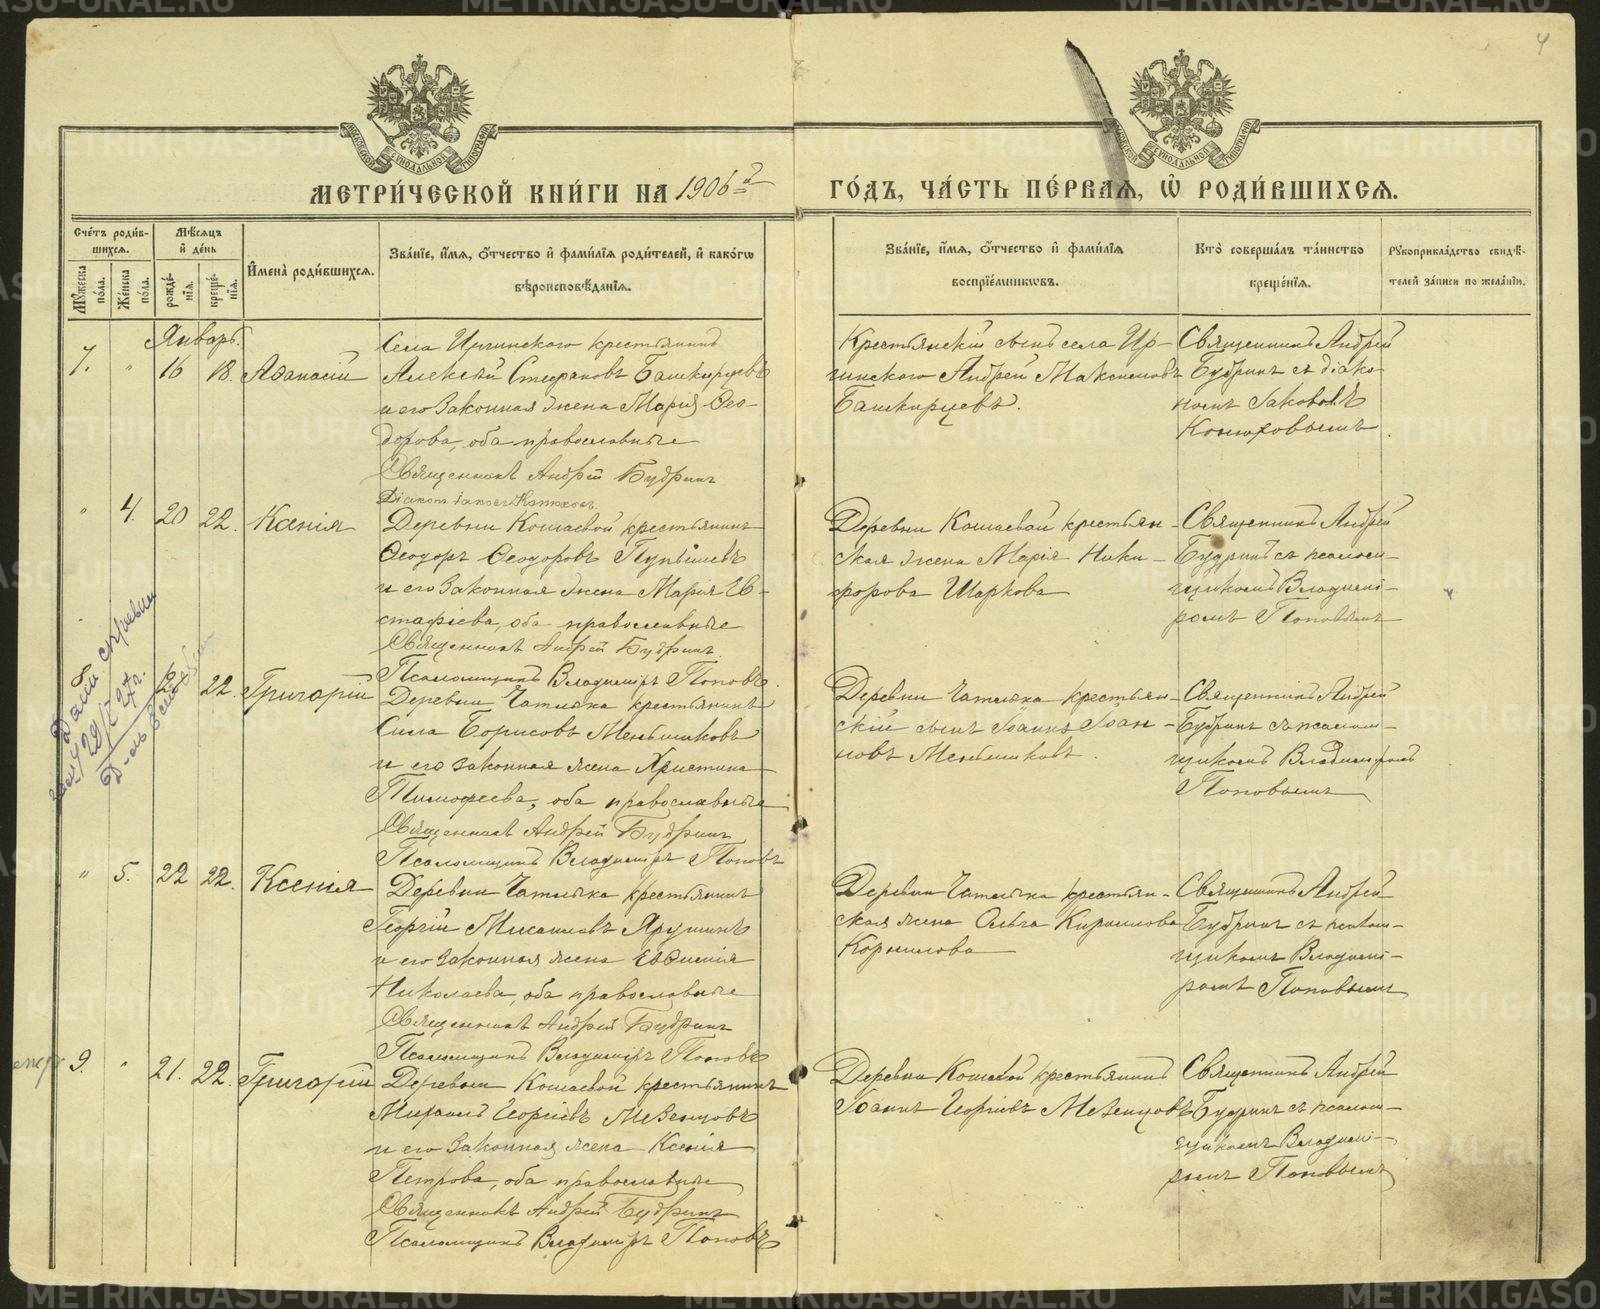 4
МЕТРИ́ЧЕСКОЙ КНИ́ГИ НА 1906 й
ГО́ДЪ, ЧА́СТЬ ПЕ́РВАѦ, Ѽ РОДИ́ВШИХСѦ.
Счетъ роди́вшихсѧ.
Мѹжеска по́ла.
Же́нска по́ла.
Мѣсѧцъ и҆ де́нь
рожде́нїѧ.
креще́нїѧ.
И҆мена̀ роди́вшихсѧ.
Зва́нїе, и҆́мѧ, ѻ҆́тчество и҆ фами́лїѧ роди́телей, и҆ како́гѡ
вѣроисповѣ́данїѧ.
Зва́нїе, и҆́мѧ, ѻ҆́тчество и҆ фами́лїѧ
воспрїе́мникѡвъ.
Кто̀ соверша́лъ та́инство
креще́нїѧ.
Рꙋкоприкла́дство свидѣ́-
телей за́писи по жела́нїю.
Январь.
7. " 16 18. Аѳанасій
Села Иргинскаго крестьянинъ
Алексѣй Стефановъ Башкирцевъ
и его законная жена Марія Ѳео-
дорова, оба православные
Священникъ Андрей Будринъ
Діаконъ Іаковъ
Крестьянскій сынъ села Ир-
гинскаго Андрей Максимовъ
Башкирцевъ.
Священникъ Андрей
Будринъ съ діако-
номъ Іаковомъ
Конюховымъ
" 4. 20 22. Ксенія
Деревни Кошаевой крестьянинъ
Ѳеодоръ Ѳеодоровъ Пупышевъ
и его законная жена Марія Ев-
стафіева, оба православные
Священникъ Андрей Будринъ
Псаломщикъ Владиміръ Поповъ.
Деревни Кошаевой крестьян-
ская жена Марія Ники-
форова Шаркова
Священникъ Андрей
Будринъ съ псалом-
щикомъ Владимі-
ромъ Поповымъ
8. 22. Григорій
Деревни Чатлыка крестьянинъ
Сила Борисовъ Меньшиковъ
и его законная жена Христина
Тимофеева, оба православные
Священникъ Андрей Будринъ
Псаломщикъ Владиміръ Поповъ
Деревни Чатлыка крестьян-
скій сынъ Іоаннъ Іоан-
новъ Меньшиковъ.
Священникъ Андрей
Будринъ съ псалом-
щикомъ Владиміромъ
Поповымъ
" 5. 22 22. Ксенія
Деревни Чатлыка крестьянинъ
Георгій Михаиловъ Ярушинъ
и его законная жена Евѳимія
Николаева, оба православные
Священникъ Андрей Будринъ
Псаломщикъ Владиміръ Поповъ
Деревни Чатлыка крестьян-
ская жена Ольга Кириллова
Корнилова
Священникъ Андрей
Будринъ съ псалом-
щикомъ Владимі-
ромъ Поповымъ
9. " 21. 22. Григорій
Деревни Кошаевой крестьянинъ
Михаилъ Георгіевъ Мезенцовъ
и его законная жена Ксенія
Петрова, оба православные
Священникъ Андрей Будринъ
Псаломщикъ Владиміръ Поповъ
Деревни Кошаевой крестьянинъ
Іоаннъ Георгіевъ Мезенцовъ
Священникъ Андрей
Будринъ съ псалом-
щикомъ Владимі-
ромъ Поповымъ
METRIKI.GASO-URAL.RU